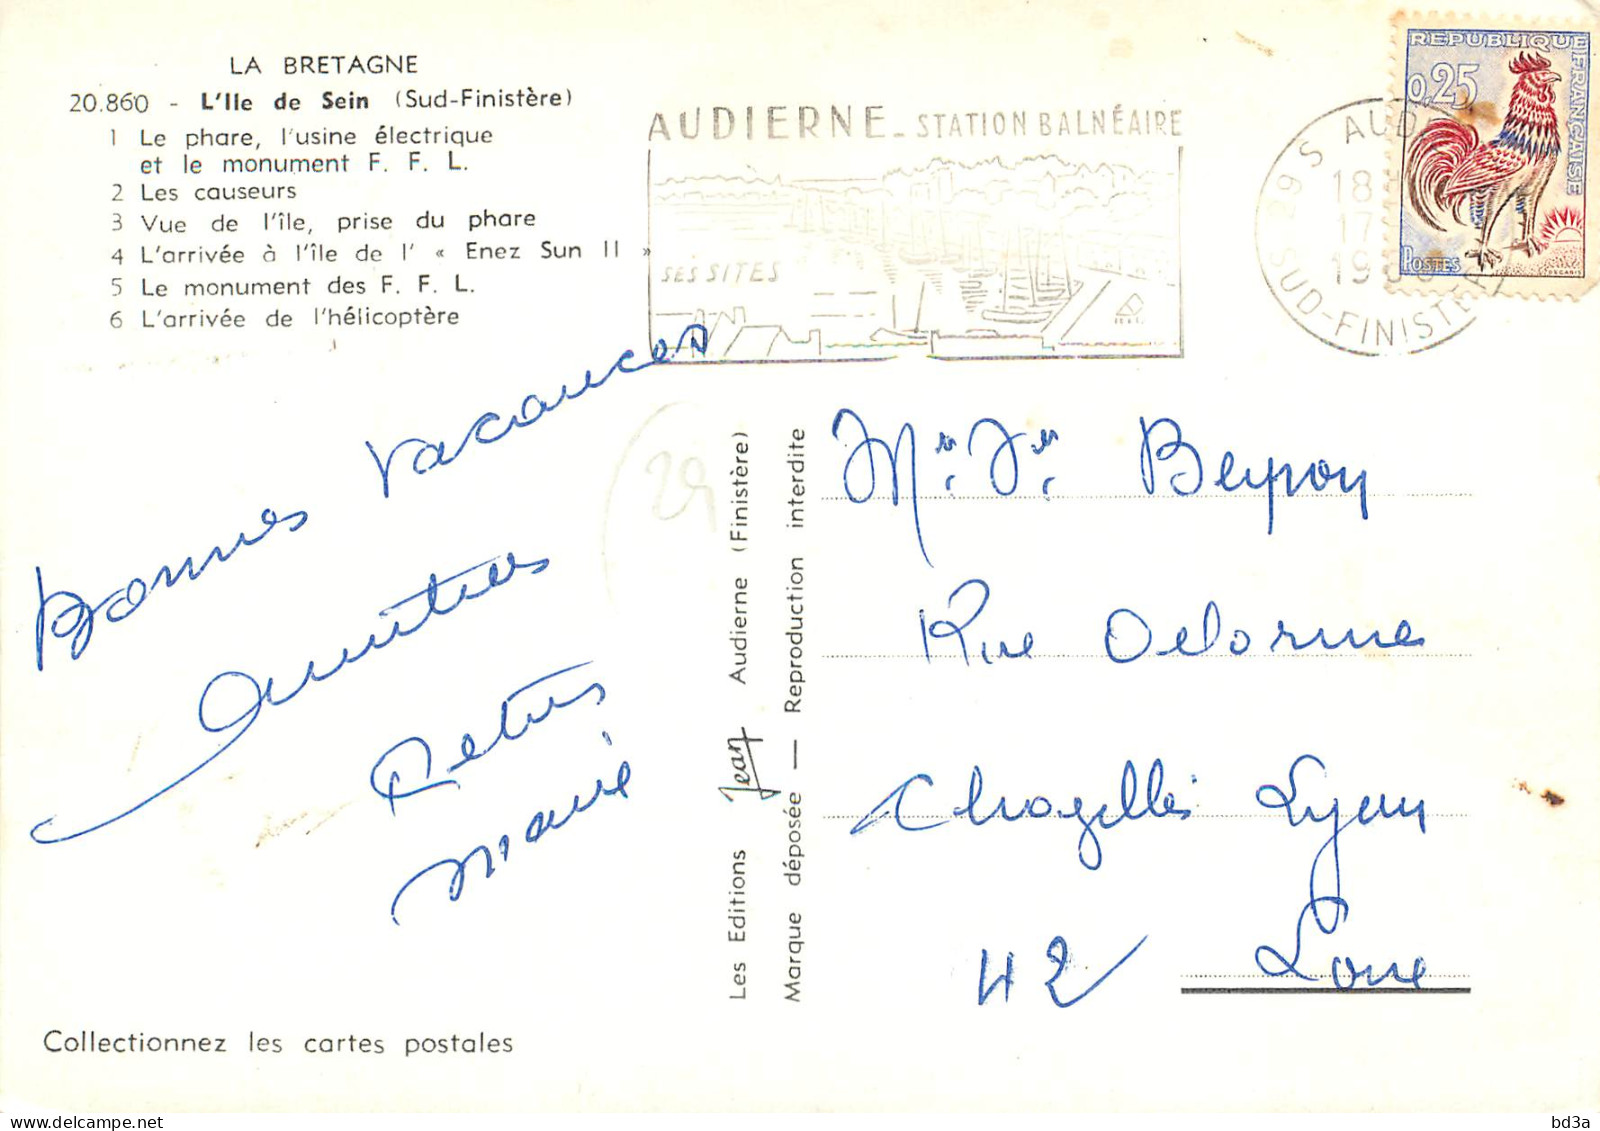 LA BRETAGNE
20.860 - L'Ile de Sein (Sud-Finistère)
1 Le phare, l'usine électrique
et le monument F. F. L.
2 Les causeurs
3 Vue de l'île, prise du phare
4 L'arrivée à l'île de l' « Enez Sun II »
5 Le monument des F. F. L.
6 L'arrivée de l'hélicoptère
AUDIERNE - STATION BALNÉAIRE
SES SITES
29 S AUD
18 H
17
19
SUD-FINISTÈ
REPUBLIQUE FRANÇAISE
0,25
POSTES
DECARIS
Bonnes vacances
Amitiés
Marie
29
Les Editions Jean Audierne (Finistère)
Marque déposée — Reproduction interdite
Mr. Beyron
Rue Delorme
Chazelles Lyon
42 Loire
Collectionnez les cartes postales
bd3a